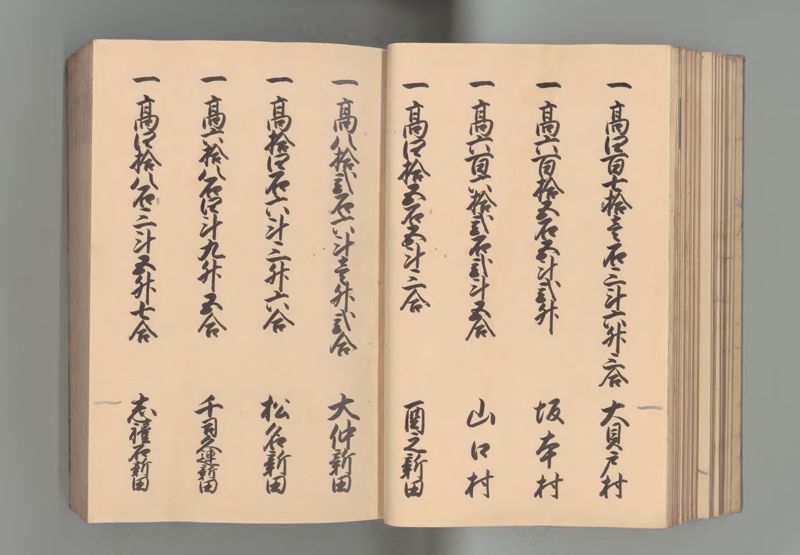 一 高四百七拾壱石三斗六升三合 大貝戸村
一 高六百拾五石五斗弐升 坂本村
一 高六百六拾弐石弐斗五合 山口村
一 高四拾五石五斗三合 新田
一 高八拾弐石六斗壱升弐合 大仲新田
一 高拾四石六斗三升六合 松名新田
一 高六拾八石四斗九升五合 千司久連新田
一 高四拾八石三斗五升七合 志礼石新田